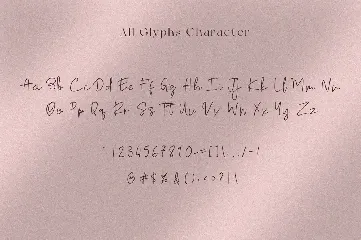 All Glyphs Character
Aa Bb Cc Dd Ee Ff Gg Hh Ii Jj Kk Ll Mm Nn
Oo Pp Qq Rr Ss Tt Uu Vv Ww Xx Yy Zz
`1234567890-=[]\;,./~!
@#$%&():<>?|\